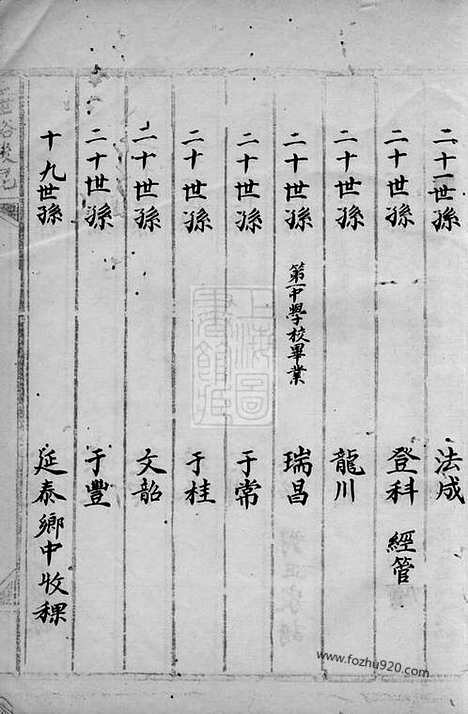 二十一世孫 法成
二十世孫 登科 經管
二十世孫 龍川
二十世孫 第一中學校畢業 瑞昌
二十世孫 于常
二十世孫 于桂
二十世孫 文韶
二十世孫 于豐
十九世孫 延泰 鄉中收稞
www.fozhu920.com